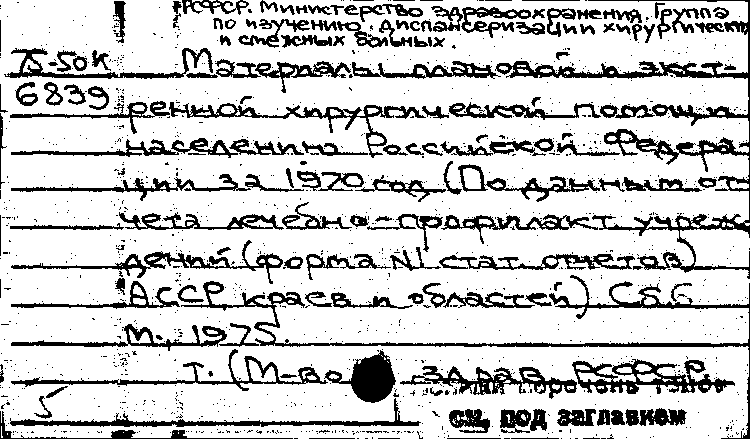 РСФСР. Министерство здравоохранения. Группа
по изучению диспансеризации хирургических
и смежных больных.
Т5-50К Материалы плановой и экст-
6839 ренной хирургической помощи
населению Российской Федера-
ции за 1970 год (По данным от-
чета лечебно-профилакт. учреж-
дений (форма N1 стат. отчетов)
АССР, краев и областей) Сб.6
М., 1975.
т. (М-во здрав. РСФСР.
5 перечень томов
см. под заглавием